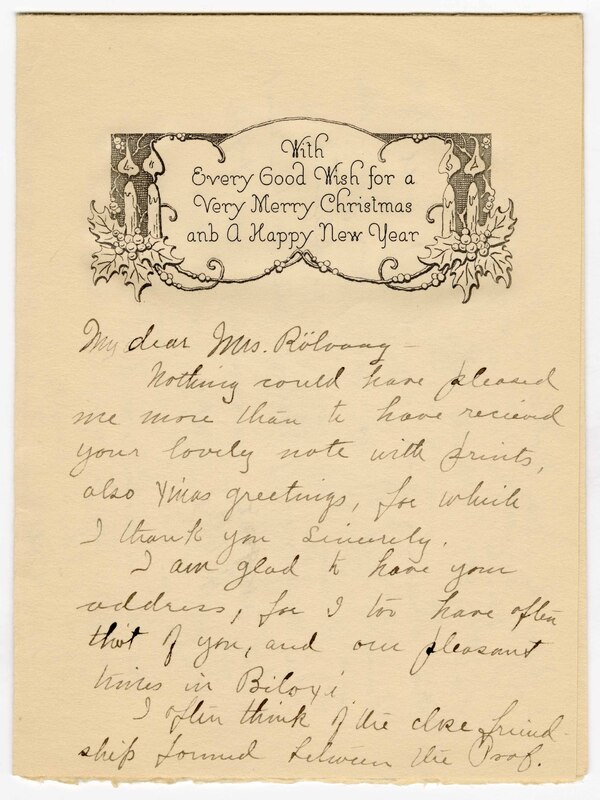 With
Every Good Wish for a
Very Merry Christmas
and A Happy New Year
My dear Mrs. Rölvaag –
Nothing could have pleased
me more than to have recieved
your lovely note with prints,
also Xmas greetings, for which
I thank you sincerely.
I am glad to have your
address, for I too have often
thot of you, and our pleasant
times in Biloxi
I often think of the close friend-
ship formed between the Prof.